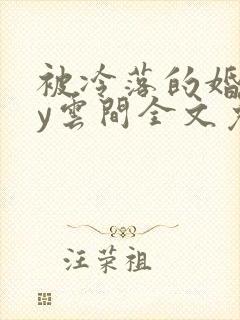 被冷落的婚
y雲間全文
汪荣祖